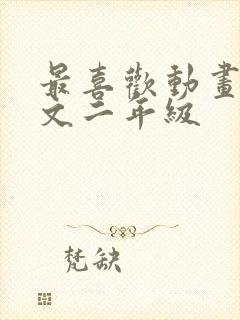 最喜歡動畫
文二年級
梵缺